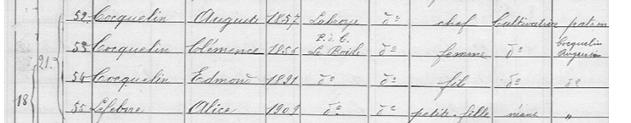 52 Cocquelin Auguste 1857 Laloye do chef Cultivateur patron
P. d. C.
21 53 Cocquelin Clémence 1856 do femme do Cocquelin Auguste
54 Cocquelin Edmond 1891 do do fils do do
18 55 Lefebvre Alice 1909 do do petite-fille néant "